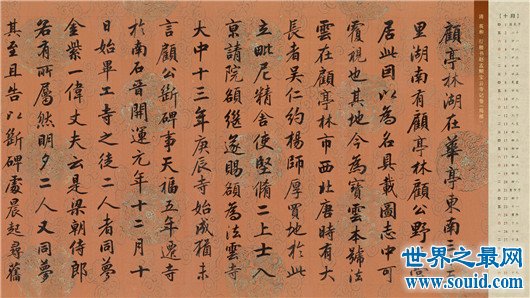 [十月]
顧亭林湖在華亭東南三
里湖南有顧亭林顧公野
居此因以為名具載圖志中可
覆視也其地今為寶雲本號法
雲在顧亭林市西北唐時有大
長者吳仁約楊師厚買地於此
立毗尼精舍使堅脩二上士入
京請院額繼遂賜額為法雲寺
大中十三年庚辰寺始成猶未
言顧公斷碑事天福五年遷寺
於南石晉開運元年十二月十
日始畢工寺之徒二人者同夢
金紫一偉丈夫云是梁朝侍郎
若有所屬然明夕二人又同夢
其至且告以斷碑處晨起尋舊
世界之最网